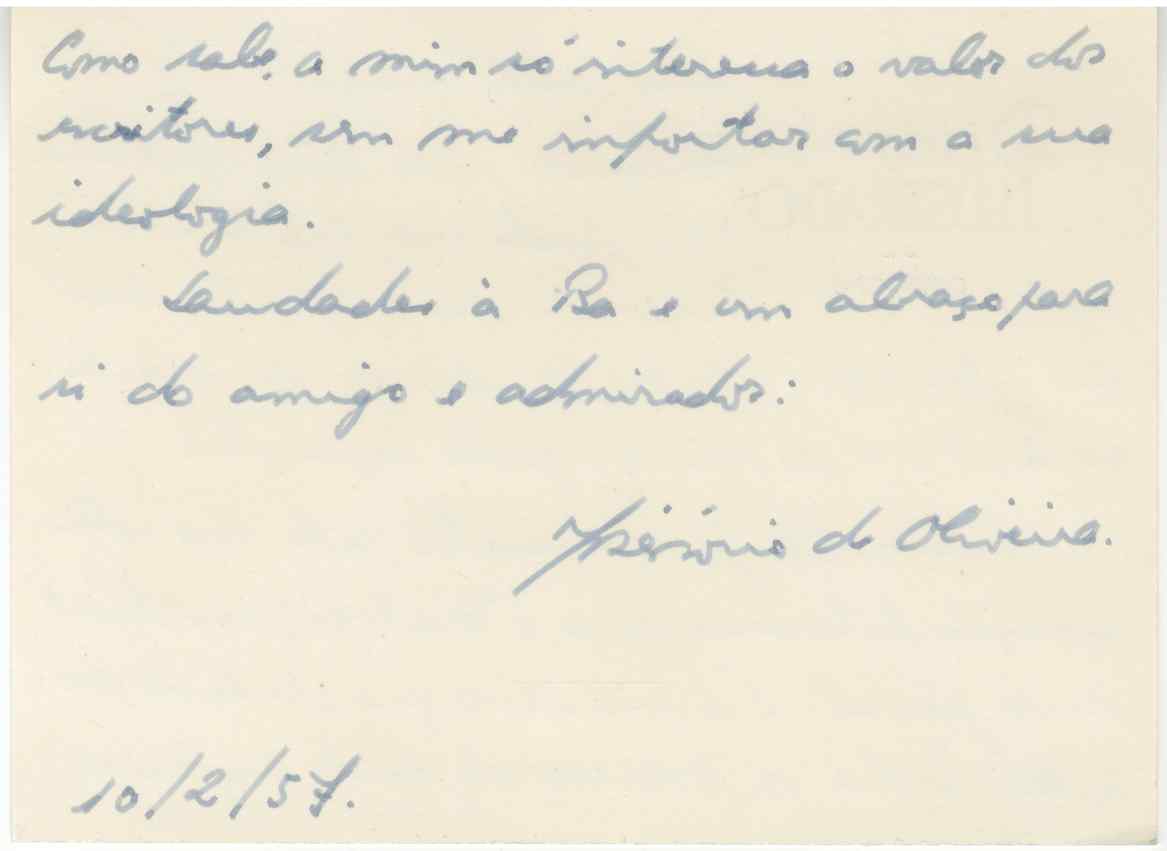 Como sabe, a mim só interessa o valor dos
escritores, sem me importar com a sua
ideologia.
Saudades à Ba e um abraço para
si do amigo e admirador:
Osório de Oliveira.
10/2/57.